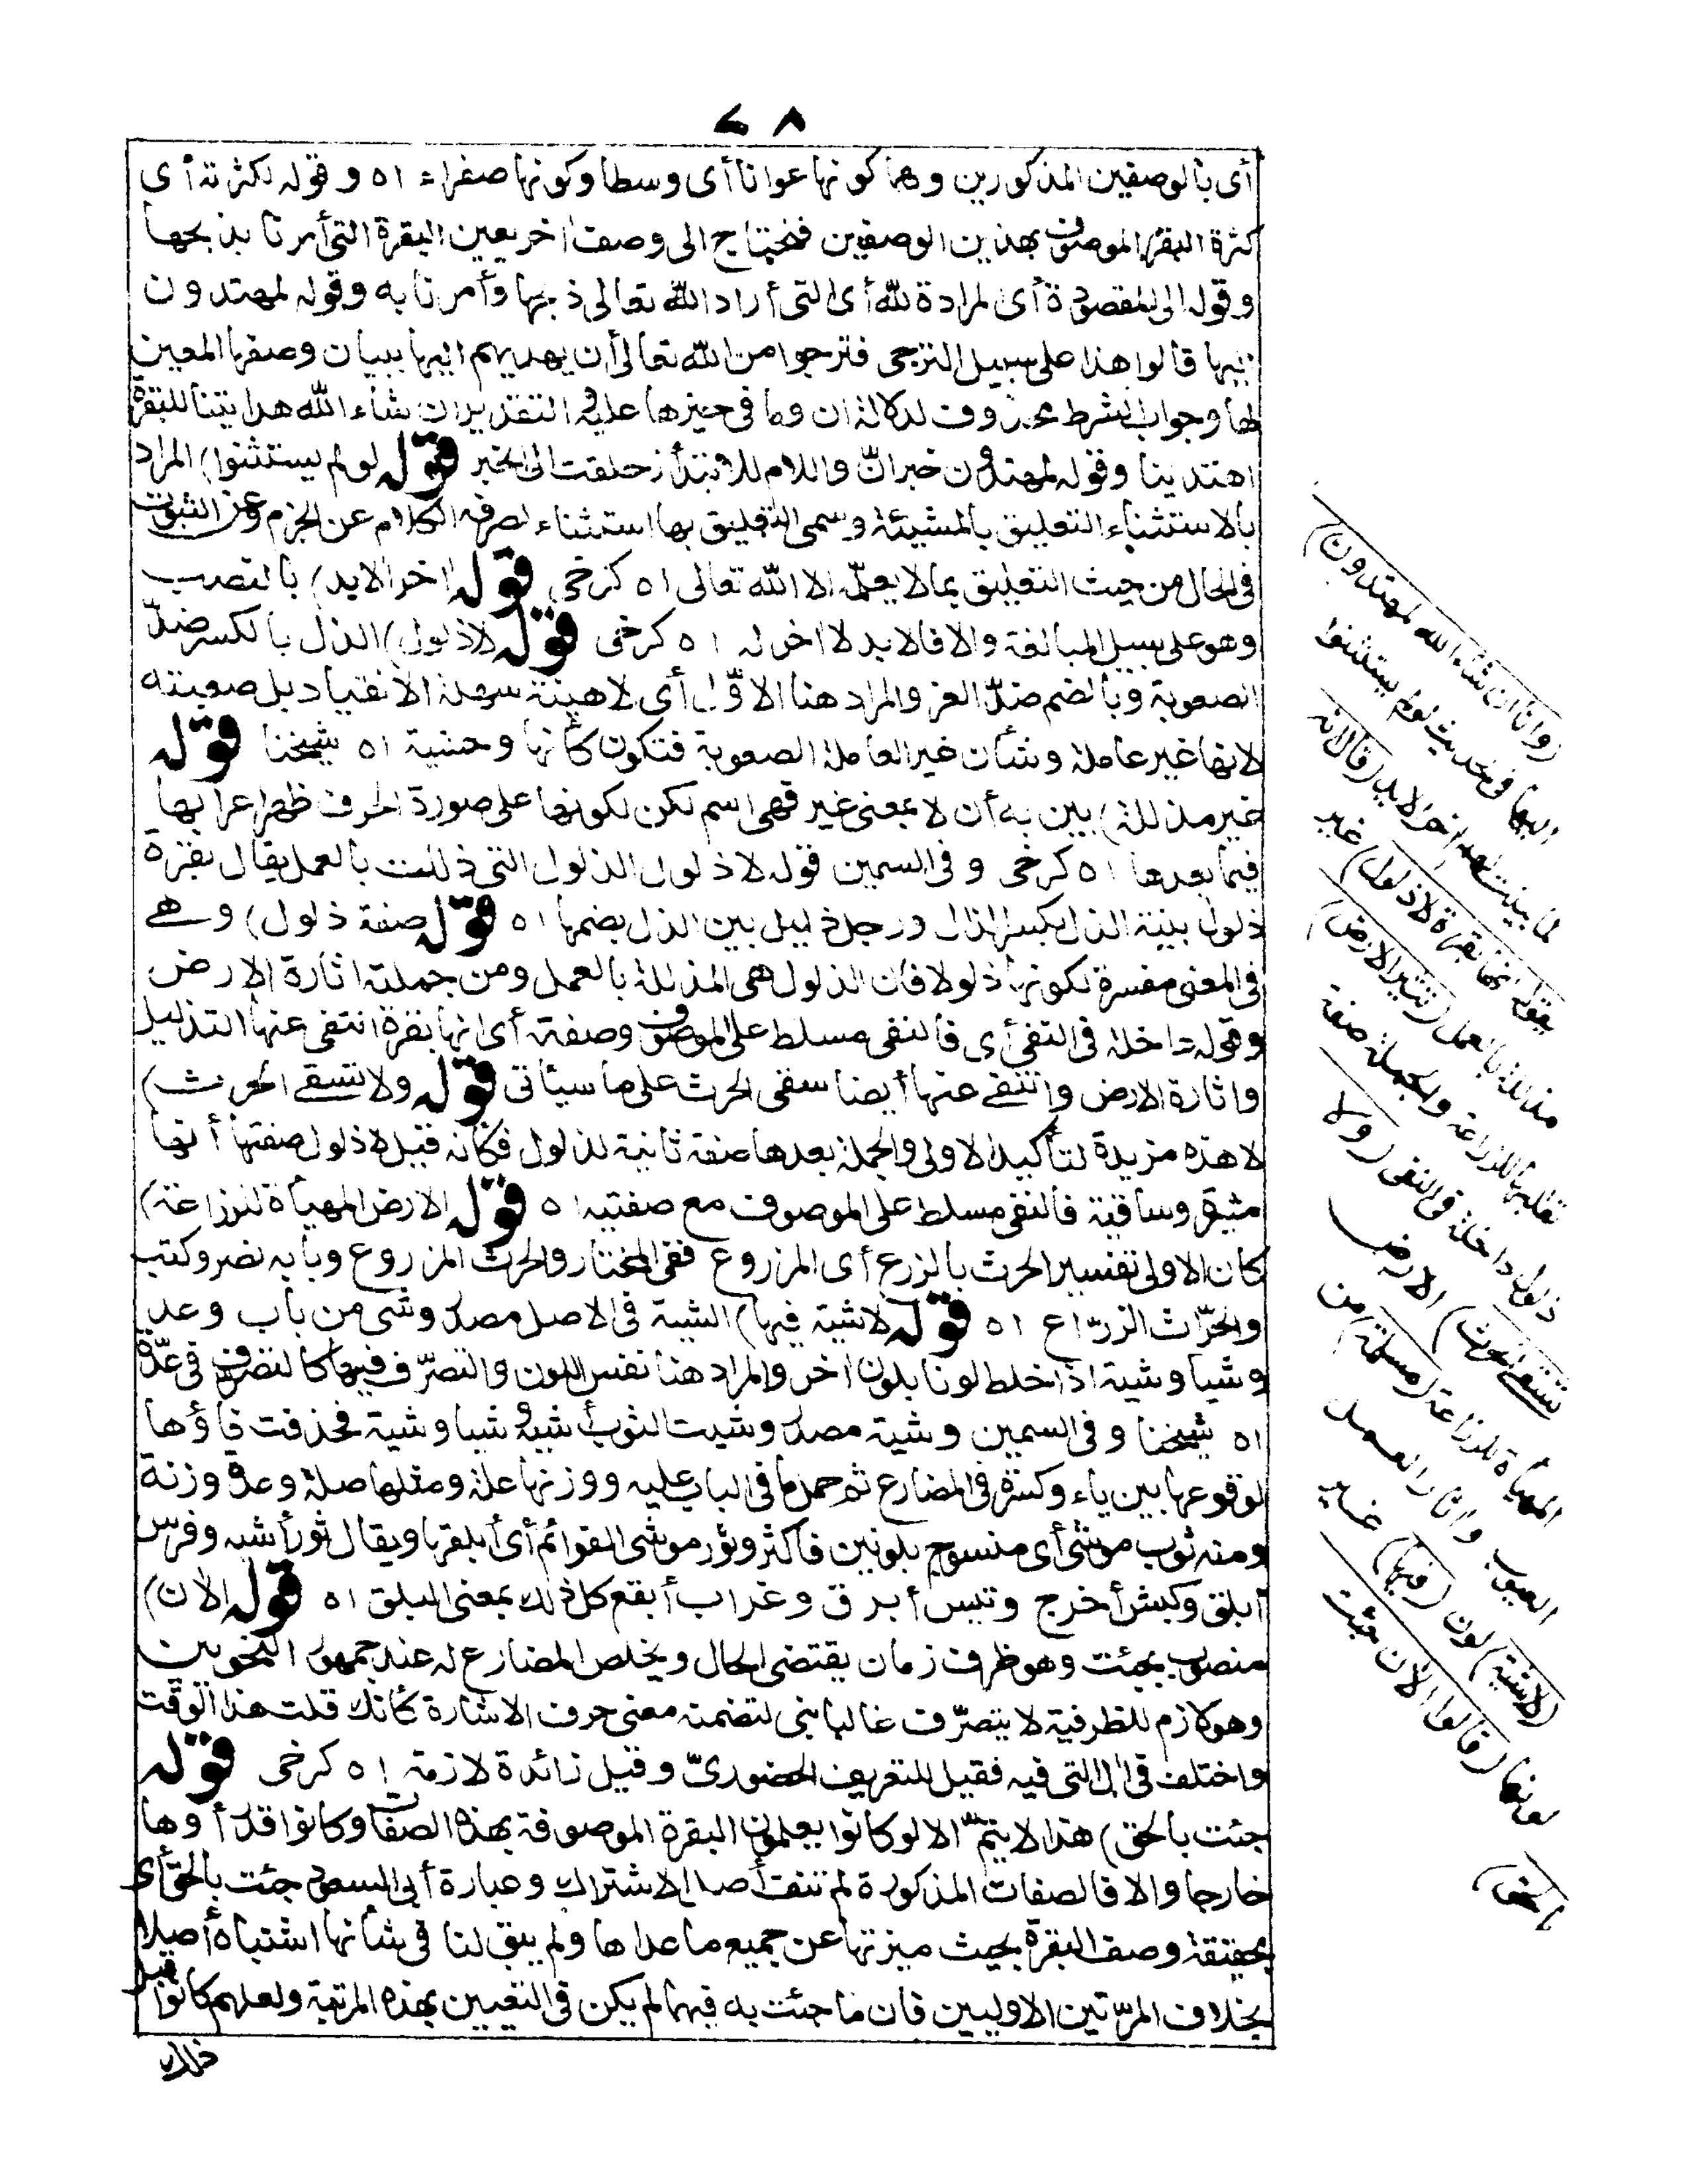 ٧٨
أى بالوصفين المذكورين وهما كونها عوانا أى وسطا وكونها صفراء اه وقوله لكثرته أى
كثرة البقر الموصوف بهذين الوصفين فنحتاج الى وصف اخر يعين البقرة التى أمرنا بذبحها
وقوله الى المقصودة أى المرادة لله أى التى أراد الله تعالى ذبحها وأمرنا به وقوله لمهتدون
اليها قالوا هذا على سبيل الترجى فترجوا من الله تعالى أن يهديهم اليها ببيان وصفها المعين
لها وجواب الشرط محذوف لدلالة ان وما فى حيزها عليه والتقدير ان شاء الله هدايتنا للبقرة
اهتدينا وقوله لمهتدون خبر انّ واللام للابتداء زحلقت الى الخبر قوله لو لم يستثنوا) المراد
بالاستثناء التعليق بالمشيئة وسمى التعليق بها استثناء لصرفه الكلام عن الجزم وعن الثبوت
فى الحال من حيث التعليق بما لا يعلمه الا الله تعالى اه كرخى قوله اخر الابد) بالنصب
وهو على سبيل المبالغة والا فالابد لا اخر له اه كرخى قوله لا ذلول) الذل بالكسر ضدّ
الصعوبة وبالضم ضدّ العز والمراد هنا الاوّل أى لا هينة سهلة الانقياد بل صعبته
لانها غير عاملة وشأن غير العاملة الصعوبة فتكون كأنها وحشية اه شيخنا قوله
غير مذللة) بين به أن لا بمعنى غير فهى اسم لكن لكونها على صورة الحرف ظهر اعرابها
فيما بعدها اه كرخى وفى السمين قوله لا ذلول الذلول التى ذللت بالعمل يقال بقرة
ذلول بينة الذل بكسر الذال ورجل ذليل بين الذل بضمها اه قوله صفة ذلول) وهے
فى المعنى مفسرة لكونها ذلولا فان الذلول هى المذللة بالعمل ومن جملته اثارة الارض
وقوله داخلة فى النفى أى فالنفى مسلط على الموصوف وصفته أى انها بقرة انتفى عنها التذليل
واثارة الارض وانتفے عنها أيضا سقى الحرث على ما سيأتى قوله ولا تسقے الحرث)
لا هذه مزيدة لتأكيد الاولى والجملة بعدها صفة ثانية لذلول فكأنه قيل لا ذلول صفتها أنها
مثيرة وساقية فالنفى مسلط على الموصوف مع صفتيه اه قوله الارض المهيأة للزراعة)
كان الاولى تفسير الحرث بالزرع أى المزروع ففى المختار والحرث المزروع وبابه نصر وكتب
والحرّاث الزرّاع اه قوله لا شية فيها) الشية فى الاصل مصدر وشى من باب وعد
وشيا وشية اذا خلط لونا بلون اخر والمراد هنا نفس اللون والتصرّف فيها كالتصرف فى عدّة
اه شيخنا وفى السمين وشية مصدر وشيت الثوب أشيه وشيا وشية فحذفت فاؤها
لوقوعها بين ياء وكسرة فى المضارع ثم حمل ما فى الباب عليه ووزنها علة ومثلها صلة وعدة وزنة
ومنه ثوب موشى أى منسوج بلونين فاكثر وثور موشى القوائم أى أبلقها ويقال ثور أشيه وفرس
أبلق وكبش أخرج وتيس أبرق وغراب أبقع كل ذلك بمعنى البلق اه قوله الان)
منصوب بجئت وهو ظرف زمان يقتضى الحال ويخلص المضارع له عند جمهور النحويين
وهو لازم للظرفية لا يتصرّف غالبا بنى لتضمنه معنى حرف الاشارة كأنك قلت هذا الوقت
واختلف فى ال التى فيه فقيل للتعريف الحضورىّ وقيل زائدة لازمة اه كرخى قوله
جئت بالحق) هذا لا يتمّ الا لو كانوا يعلمون البقرة الموصوفة بهذه الصفات وكانوا قد رأوها
خارجا والا فالصفات المذكورة لم تنف أصل الاشتراك وعبارة أبى السعود جئت بالحق أى
بحقيقة وصف البقرة بحيث ميزتها عن جميع ما عداها ولم يبق لنا فى شأنها اشتباه أصلا
بخلاف المرّتين الاوليين فان ما جئت به فيهما لم يكن فى التعيين بهذه المرتبة ولعلهم كانوا قبل
ذلك
(وانا ان شاء الله لمهتدون)
اليها وفى حديث لو لم يستثنوا
لما بينت لهم اخر الابد (قال انه
يقول انها بقرة لا ذلول) غير
مذللة بالعمل (تثير الارض)
تقلبها للزراعة والجملة صفة
ذلول داخلة فى النفى (ولا
تسقے الحرث) الارض
المهيأة للزراعة (مسلمة) من
العيوب واثار العمل
(لا شية) لون (فيها) غير
لونها (قالوا الان جئت
بالحق)